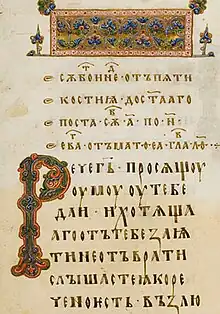 СѪБОТНЕ · ОТЪ ПѦТИ
КОСТИѨ · ДОСТЛАГО
ПОСТА · СѪ · А · ПО · Н ·
ЕВА · ОТЪ МАТѲЕА · ГЛА
РЕЧЕ ГЬ · ПРОСѦШЮ
ОУМОУ ОУ ТЕБЕ
ДАИ · И ХОТѦЩА
АГО ОТЪ ТЕБЕ ЗАѨ
ТИ НЕ ОТЪВРАТИ
СЛЫШАСТЕ ѨКО РЕ
ЧЕНО ѤСТЬ · ВЪЗЛЮ